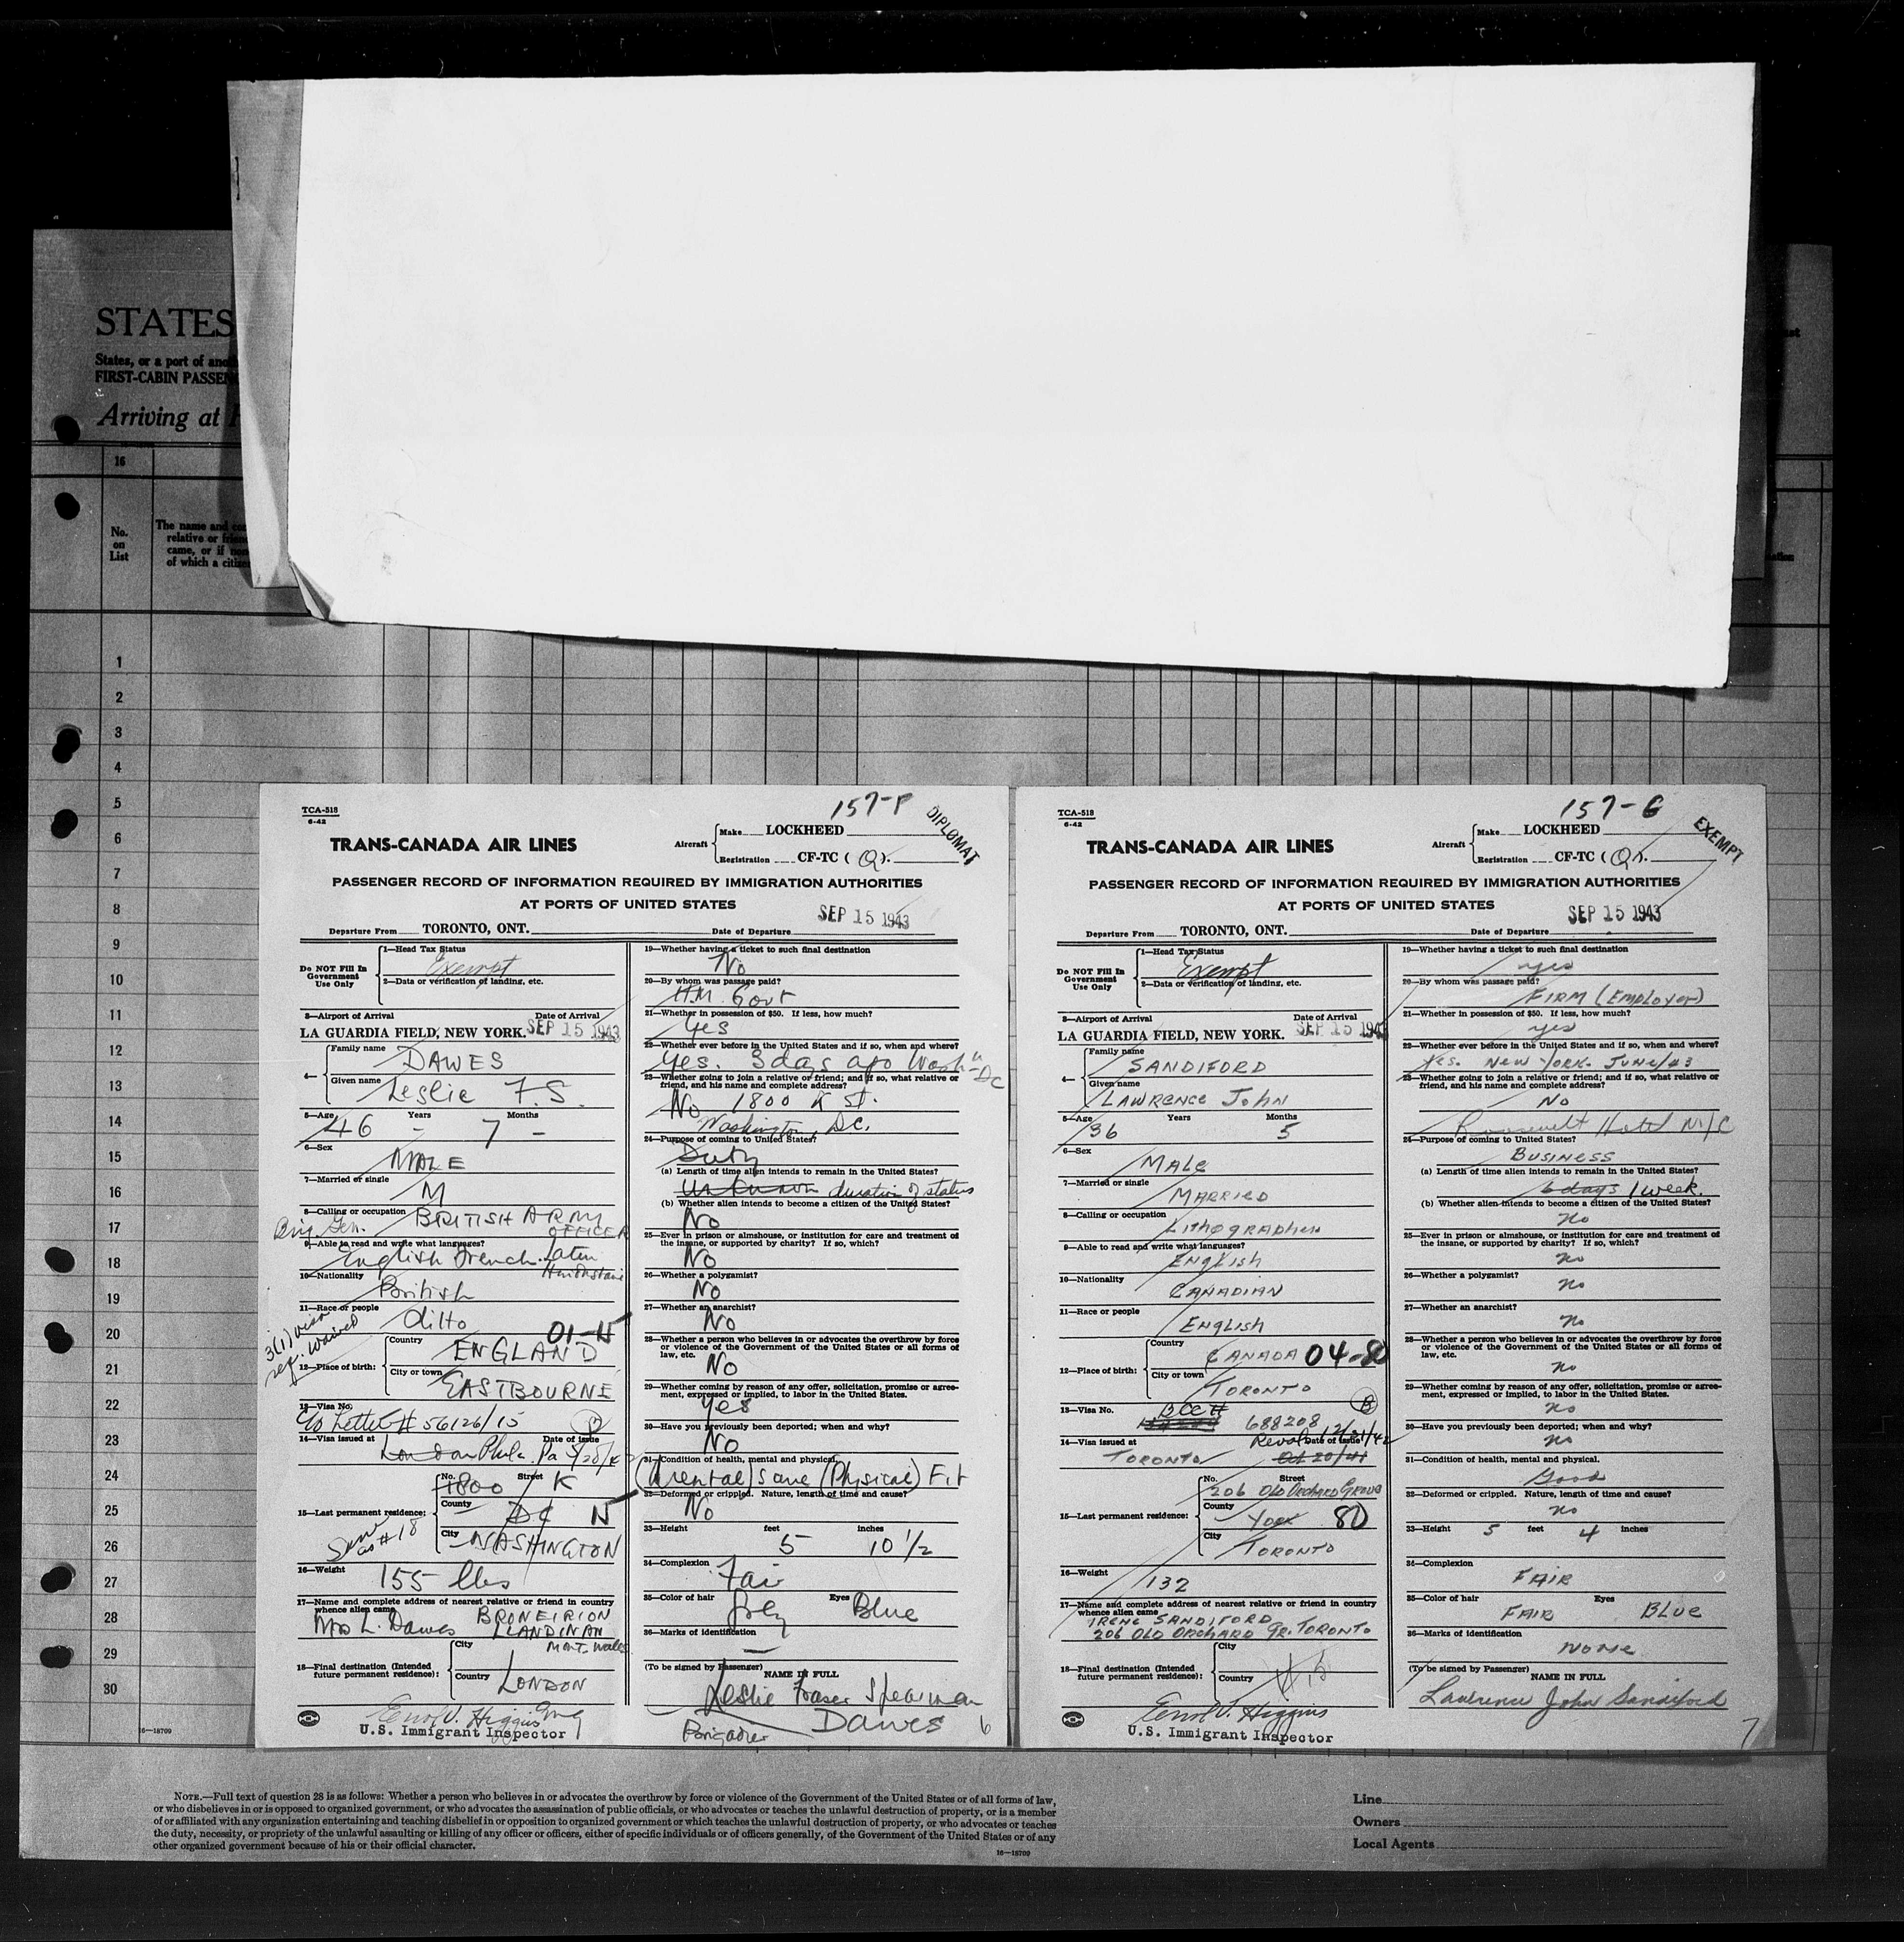 STATES
States, or a port of
FIRST-CABIN
Arriving at
16
No.
on
List
The name and
relative or
came, or if
of which a
1
2
3
4
5
6
7
8
9
10
11
12
13
14
15
16
17
18
19
20
21
22
23
24
25
26
27
28
29
30
16—18709
TCA-518
6-42
157-P
DIPLOMAT
TRANS-CANADA AIR LINES
Aircraft
Make LOCKHEED
Registration CF-TC (Q).
PASSENGER RECORD OF INFORMATION REQUIRED BY IMMIGRATION AUTHORITIES
AT PORTS OF UNITED STATES
SEP 15 1943
Departure From TORONTO, ONT. Date of Departure
Do NOT Fill In
Government
Use Only
1—Head Tax Status
Exempt
2—Data or verification of landing, etc.
3—Airport of Arrival Date of Arrival
LA GUARDIA FIELD, NEW YORK. SEP 15 1943
4—
Family name
DAWES
Given name
Leslie F.S.
5—Age Years Months
46 - 7 -
6—Sex
MALE
7—Married or single
M
8—Calling or occupation BRITISH ARMY
Brig. Gen. OFFICER
9—Able to read and write what languages?
English French. Latin
Hindustani
10—Nationality
British
11—Race or people
ditto
3(1) visa
waived
01-N
12—Place of birth:
Country
ENGLAND
City or town
EASTBOURNE
13—Visa No.
Letter # 56126/15 B
14—Visa issued at Date of issue
London Phila. Pa
15—Last permanent residence:
No. Street
1800 K
County
DC N
City
WASHINGTON
Same
as #18
16—Weight
155 lbs
17—Name and complete address of nearest relative or friend in country
whence alien came
Mrs L. Dawes BRONEIRION
LLANDINAM
MONT. Wales
18—Final destination (Intended
future permanent residence):
City
Country
LONDON
Errol V. Higgins
U.S. Immigrant Inspector
19—Whether having a ticket to such final destination
No
20—By whom was passage paid?
H.M. Govt
21—Whether in possession of $50. If less, how much?
Yes
22—Whether ever before in the United States and if so, when and where?
Yes. 3 days ago Wash" DC
23—Whether going to join a relative or friend; and if so, what relative or
friend, and his name and complete address?
No 1800 K St.
Washington, DC.
24—Purpose of coming to United States?
Duty
(a) Length of time alien intends to remain in the United States?
Unknown duration of status
(b) Whether alien intends to become a citizen of the United States?
No
25—Ever in prison or almshouse, or institution for care and treatment of
the insane, or supported by charity? If so, which?
No
26—Whether a polygamist?
No
27—Whether an anarchist?
No
28—Whether a person who believes in or advocates the overthrow by force
or violence of the Government of the United States or all forms of
law, etc.
No
29—Whether coming by reason of any offer, solicitation, promise or agree-
ment, expressed or implied, to labor in the United States.
Yes
30—Have you previously been deported; when and why?
No
31—Condition of health, mental and physical.
(Mental) Sane (Physical) Fit
32—Deformed or crippled. Nature, length of time and cause?
No
33—Height feet inches
5 10 1/2
34—Complexion
Fair
35—Color of hair Eyes Blue
36—Marks of identification
—
(To be signed by Passenger)
NAME IN FULL
Leslie Fraser Spearman
Dawes
Brigadier
6
TCA-518
6-42
157-G
EXEMPT
TRANS-CANADA AIR LINES
Aircraft
Make LOCKHEED
Registration CF-TC (Q).
PASSENGER RECORD OF INFORMATION REQUIRED BY IMMIGRATION AUTHORITIES
AT PORTS OF UNITED STATES
SEP 15 1943
Departure From TORONTO, ONT. Date of Departure
Do NOT Fill In
Government
Use Only
1—Head Tax Status
Exempt
2—Data or verification of landing, etc.
3—Airport of Arrival Date of Arrival
LA GUARDIA FIELD, NEW YORK. SEP 15 1943
4—
Family name
SANDIFORD
Given name
LAWRENCE JOHN
5—Age Years Months
36 5
6—Sex
MALE
7—Married or single
MARRIED
8—Calling or occupation
LITHOGRAPHER
9—Able to read and write what languages?
ENGLISH
10—Nationality
CANADIAN
11—Race or people
ENGLISH
12—Place of birth:
Country
CANADA 04-80
City or town
TORONTO
13—Visa No. BCC# B
688208
14—Visa issued at Reval. 12/31/42 Date of issue
TORONTO Oct 20/41
15—Last permanent residence:
No. Street
206 OLD ORCHARD GROVE
County
YORK 80
City
TORONTO
16—Weight
132
17—Name and complete address of nearest relative or friend in country
whence alien came
IRENE SANDIFORD
206 OLD ORCHARD GR. TORONTO
18—Final destination (Intended
future permanent residence):
City
Country
#15
Errol V. Higgins
U.S. Immigrant Inspector
19—Whether having a ticket to such final destination
yes
20—By whom was passage paid?
FIRM (EMPLOYER)
21—Whether in possession of $50. If less, how much?
yes
22—Whether ever before in the United States and if so, when and where?
Yes. NEW YORK. JUNE/43
23—Whether going to join a relative or friend; and if so, what relative or
friend, and his name and complete address?
NO
Roosevelt Hotel NYC
24—Purpose of coming to United States?
BUSINESS
(a) Length of time alien intends to remain in the United States?
6 days 1 week.
(b) Whether alien intends to become a citizen of the United States?
no
25—Ever in prison or almshouse, or institution for care and treatment of
the insane, or supported by charity? If so, which?
no
26—Whether a polygamist?
no
27—Whether an anarchist?
no
28—Whether a person who believes in or advocates the overthrow by force
or violence of the Government of the United States or all forms of
law, etc.
no
29—Whether coming by reason of any offer, solicitation, promise or agree-
ment, expressed or implied, to labor in the United States.
no
30—Have you previously been deported; when and why?
no
31—Condition of health, mental and physical.
Good
32—Deformed or crippled. Nature, length of time and cause?
no
33—Height 5 feet 4 inches
34—Complexion
FAIR
35—Color of hair Eyes
FAIR BLUE
36—Marks of identification
NONE
(To be signed by Passenger)
NAME IN FULL
Lawrence John Sandiford
7
NOTE.—Full text of question 28 is as follows: Whether a person who believes in or advocates the overthrow by force or violence of the Government of the United States or of all forms of law,
or who disbelieves in or is opposed to organized government, or who advocates the assassination of public officials, or who advocates or teaches the unlawful destruction of property, or is a member
of or affiliated with any organization entertaining and teaching disbelief in or opposition to organized government or which teaches the unlawful destruction of property, or who advocates or teaches
the duty, necessity, or propriety of the unlawful assaulting or killing of any officer or officers, either of specific individuals or of officers generally, of the Government of the United States or of any
other organized government because of his or their official character.
16—18709
Line
Owners
Local Agents